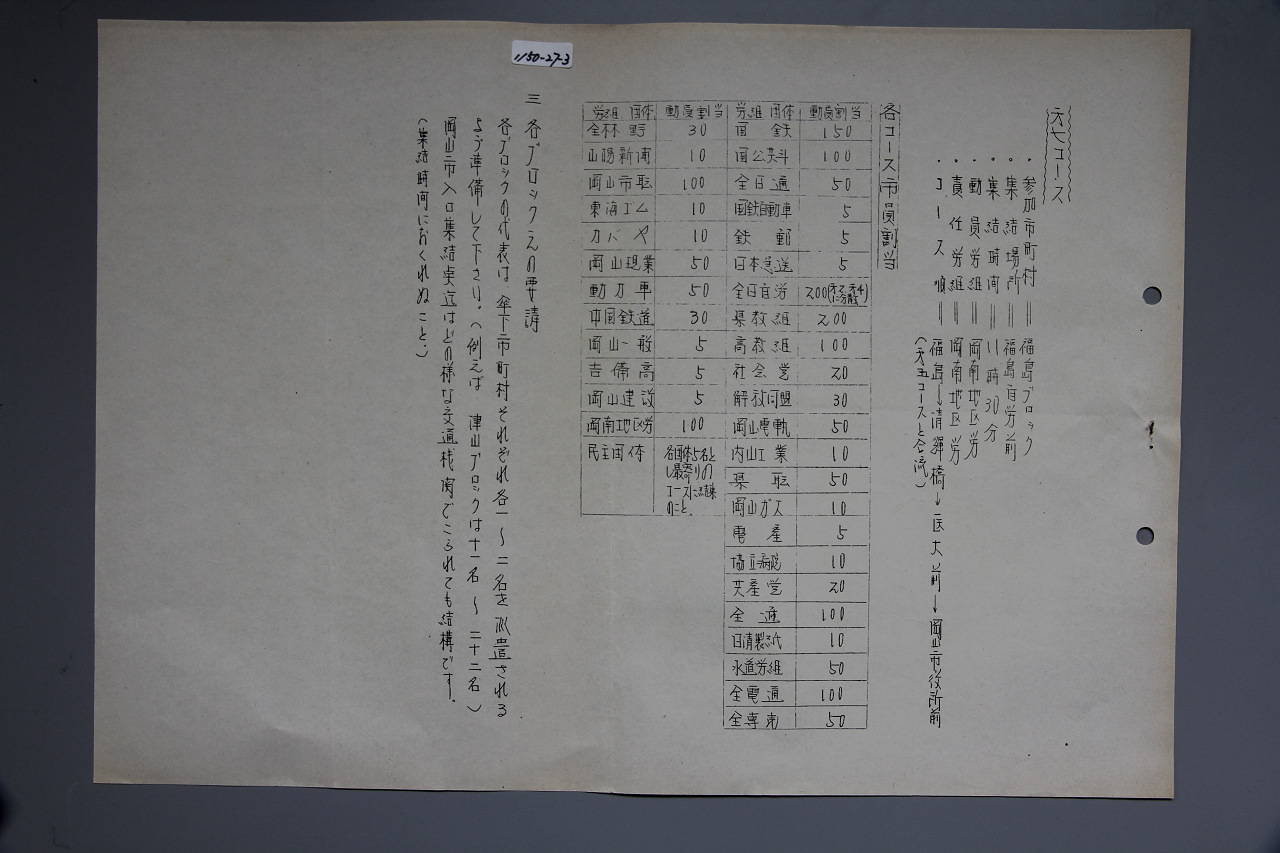 1150-27-3
第七コース
・参加市町村＝福島ブロック
・集結場所＝福島自労前
・集結時間＝11時30分
・動員労組＝岡南地区労
・責任労組＝岡南地区労
・コース順＝福島→清輝橋→医大前→岡山市役所前
(第五コースと合流)
各コース市員割当
労組団体 動員割当
国鉄 150
国公共斗 100
全日通 50
国鉄自動車 5
鉄郵 5
日本急送 5
全日自労 200
県教組 200
高教組 100
社会党 20
解放同盟 30
岡山電軌 50
内山工業 10
県職 50
岡山ガス 10
電産 5
協立病院 10
共産党 20
全逓 100
日清製紙 10
水道労組 50
全電通 100
全専売 50
労組団体 動員割当
全林野 30
山陽新聞 10
岡山市職 100
東海ゴム 10
カバヤ 10
岡山現業 50
動力車 50
中国鉄道 30
岡山一般 5
吉備高 5
岡山建設 5
岡南地区労 100
民主団体 各団体5名とし最寄りのコースに結集のこと。
三 各ブロックえの要請
各ブロックの代表は傘下市町村それぞれ各一〜二名を派遣される
よう準備して下さい。(例えば 津山ブロックは十一名〜二十二名)
岡山市入口集結点迄はどの様な交通機関でこられても結構です。
(集結時間におくれぬこと。)